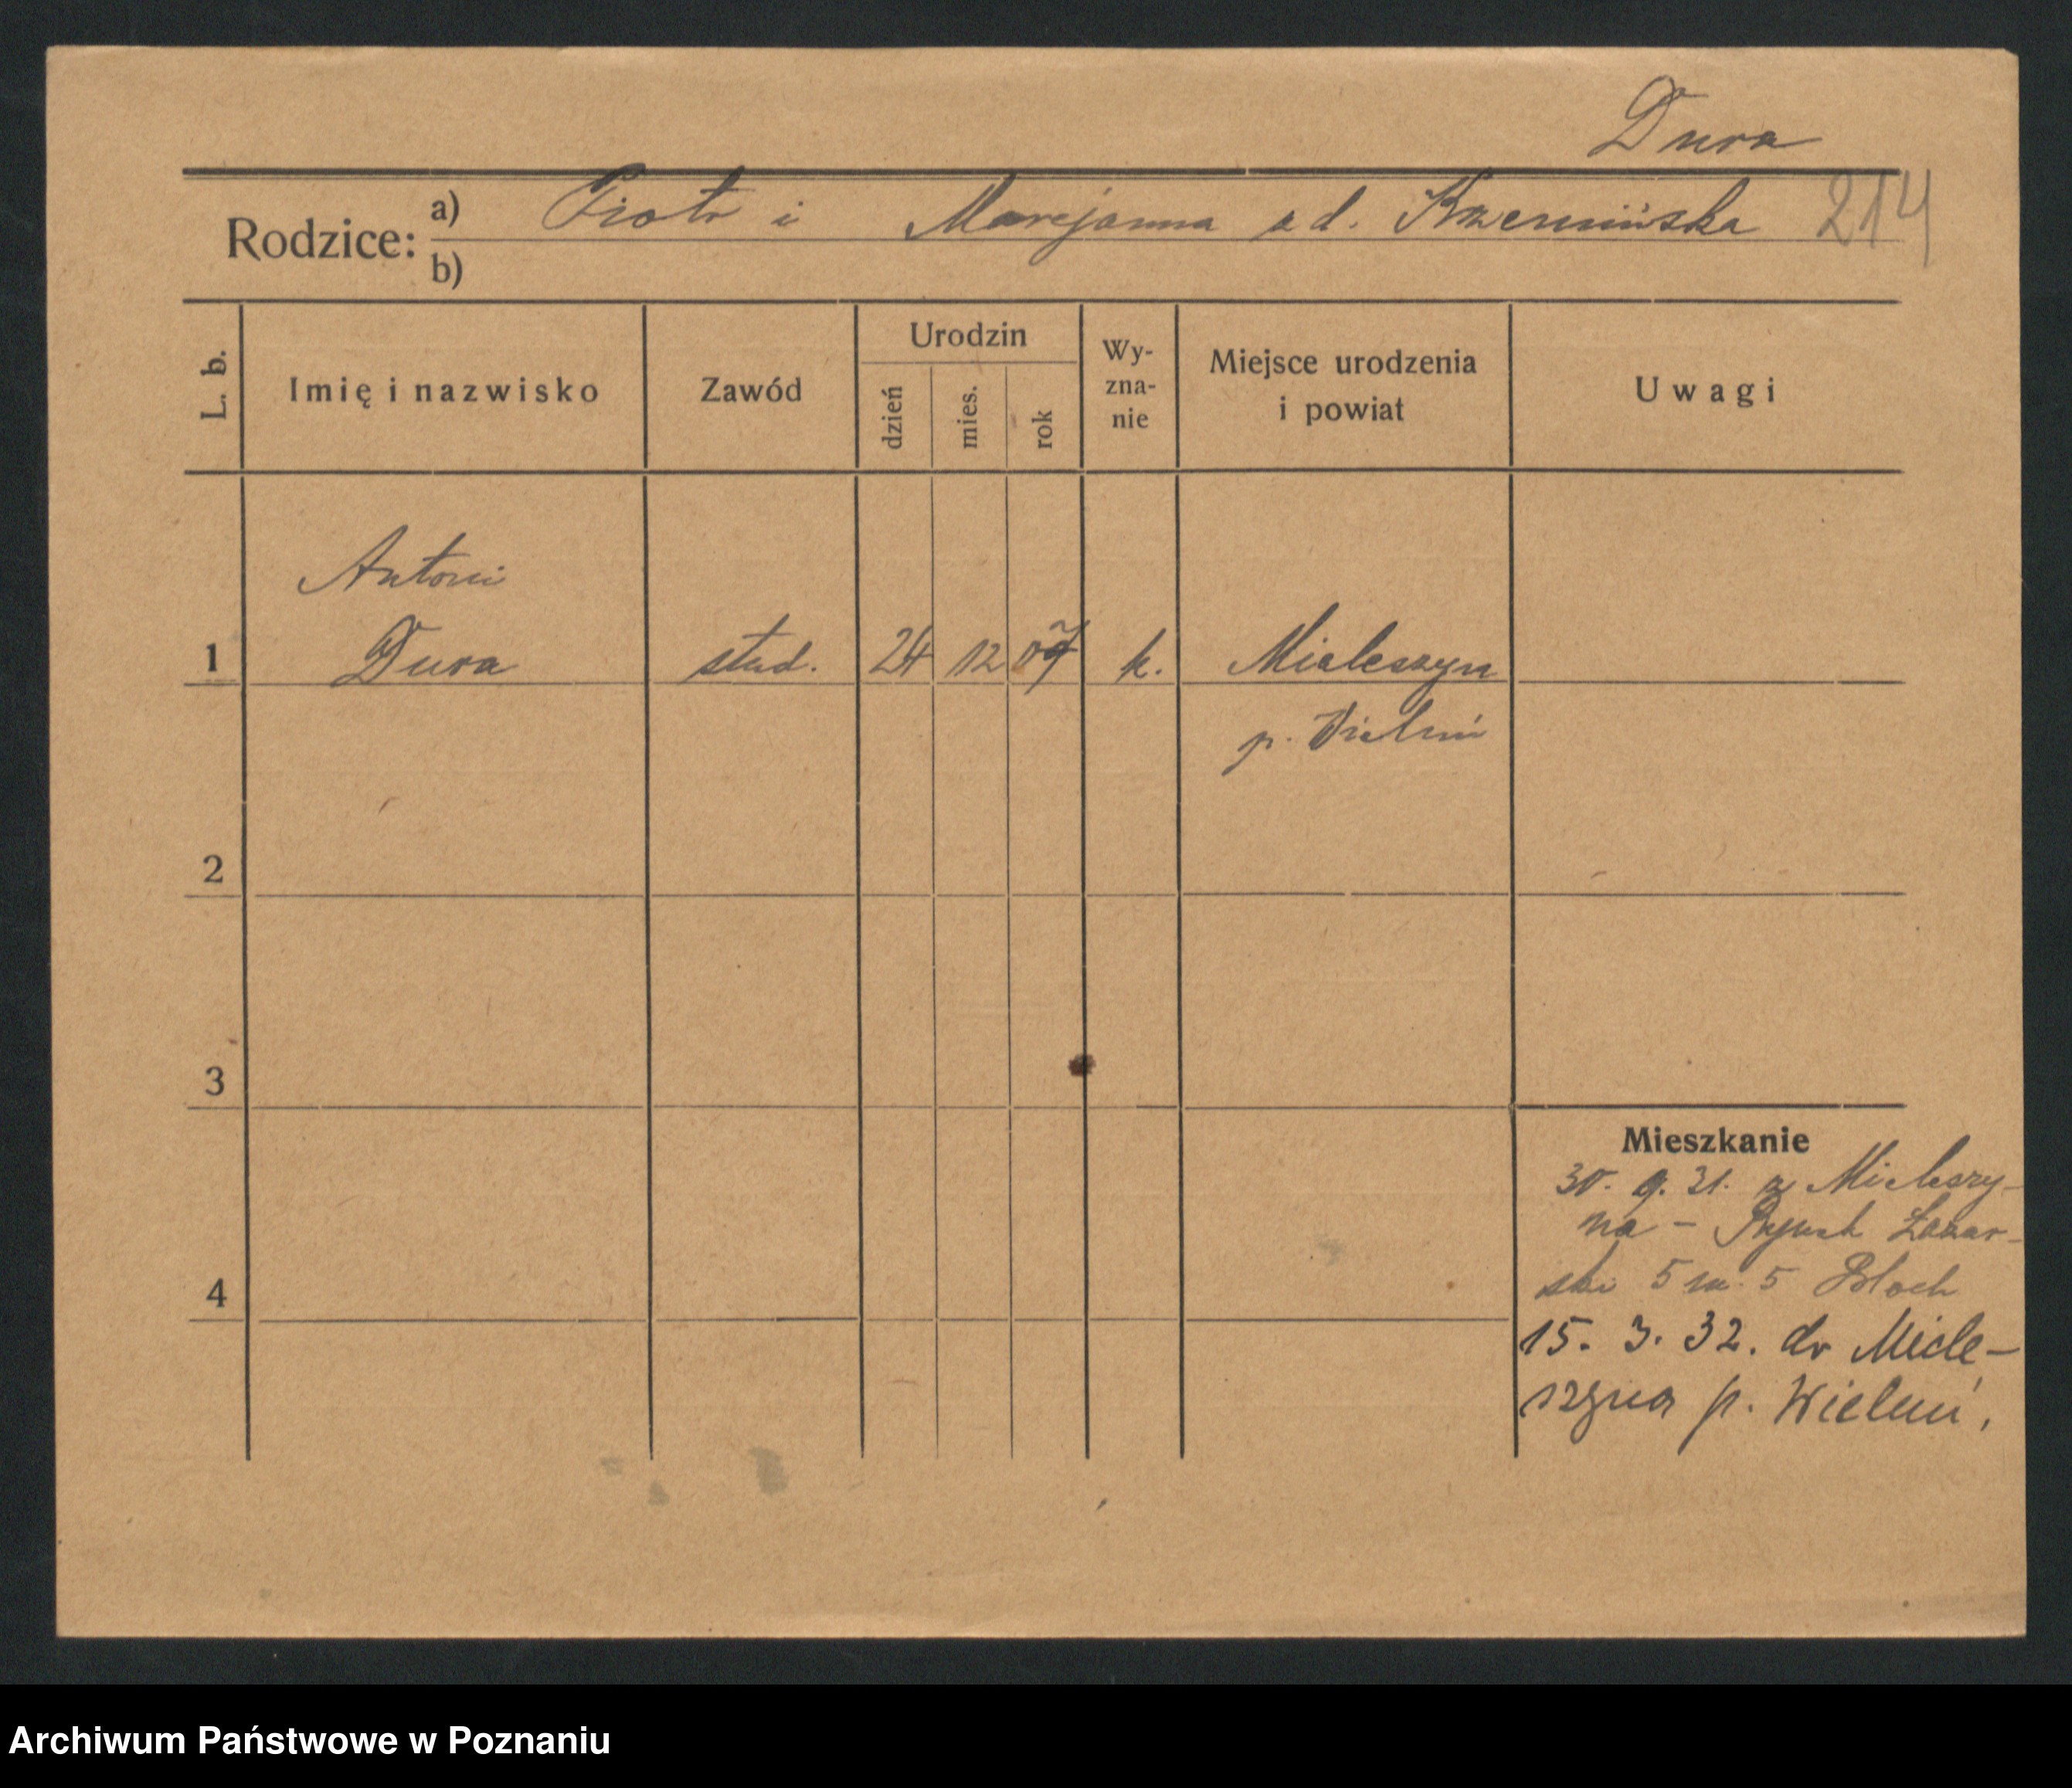 Dura
Rodzice: a) Piotr i Marejanna z d. Krzemińska 214
b)
L. b. Imię i nazwisko Zawód Urodzin dzień mies. rok Wy-zna-nie Miejsce urodzenia i powiat Uwagi
Antoni
1 Dura stud. 24 12 07 k. Mieleszyn
p. Wieluń
2
3
Mieszkanie
30. 9. 31. z Mieleszy-
na - Rynek Łazar-
4 ski 5 m. 5 Bloch
15. 3. 32. do Miele-
szyna p. Wieluń.
Archiwum Państwowe w Poznaniu